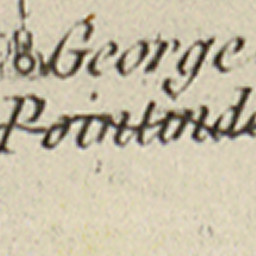 George
Pointinde